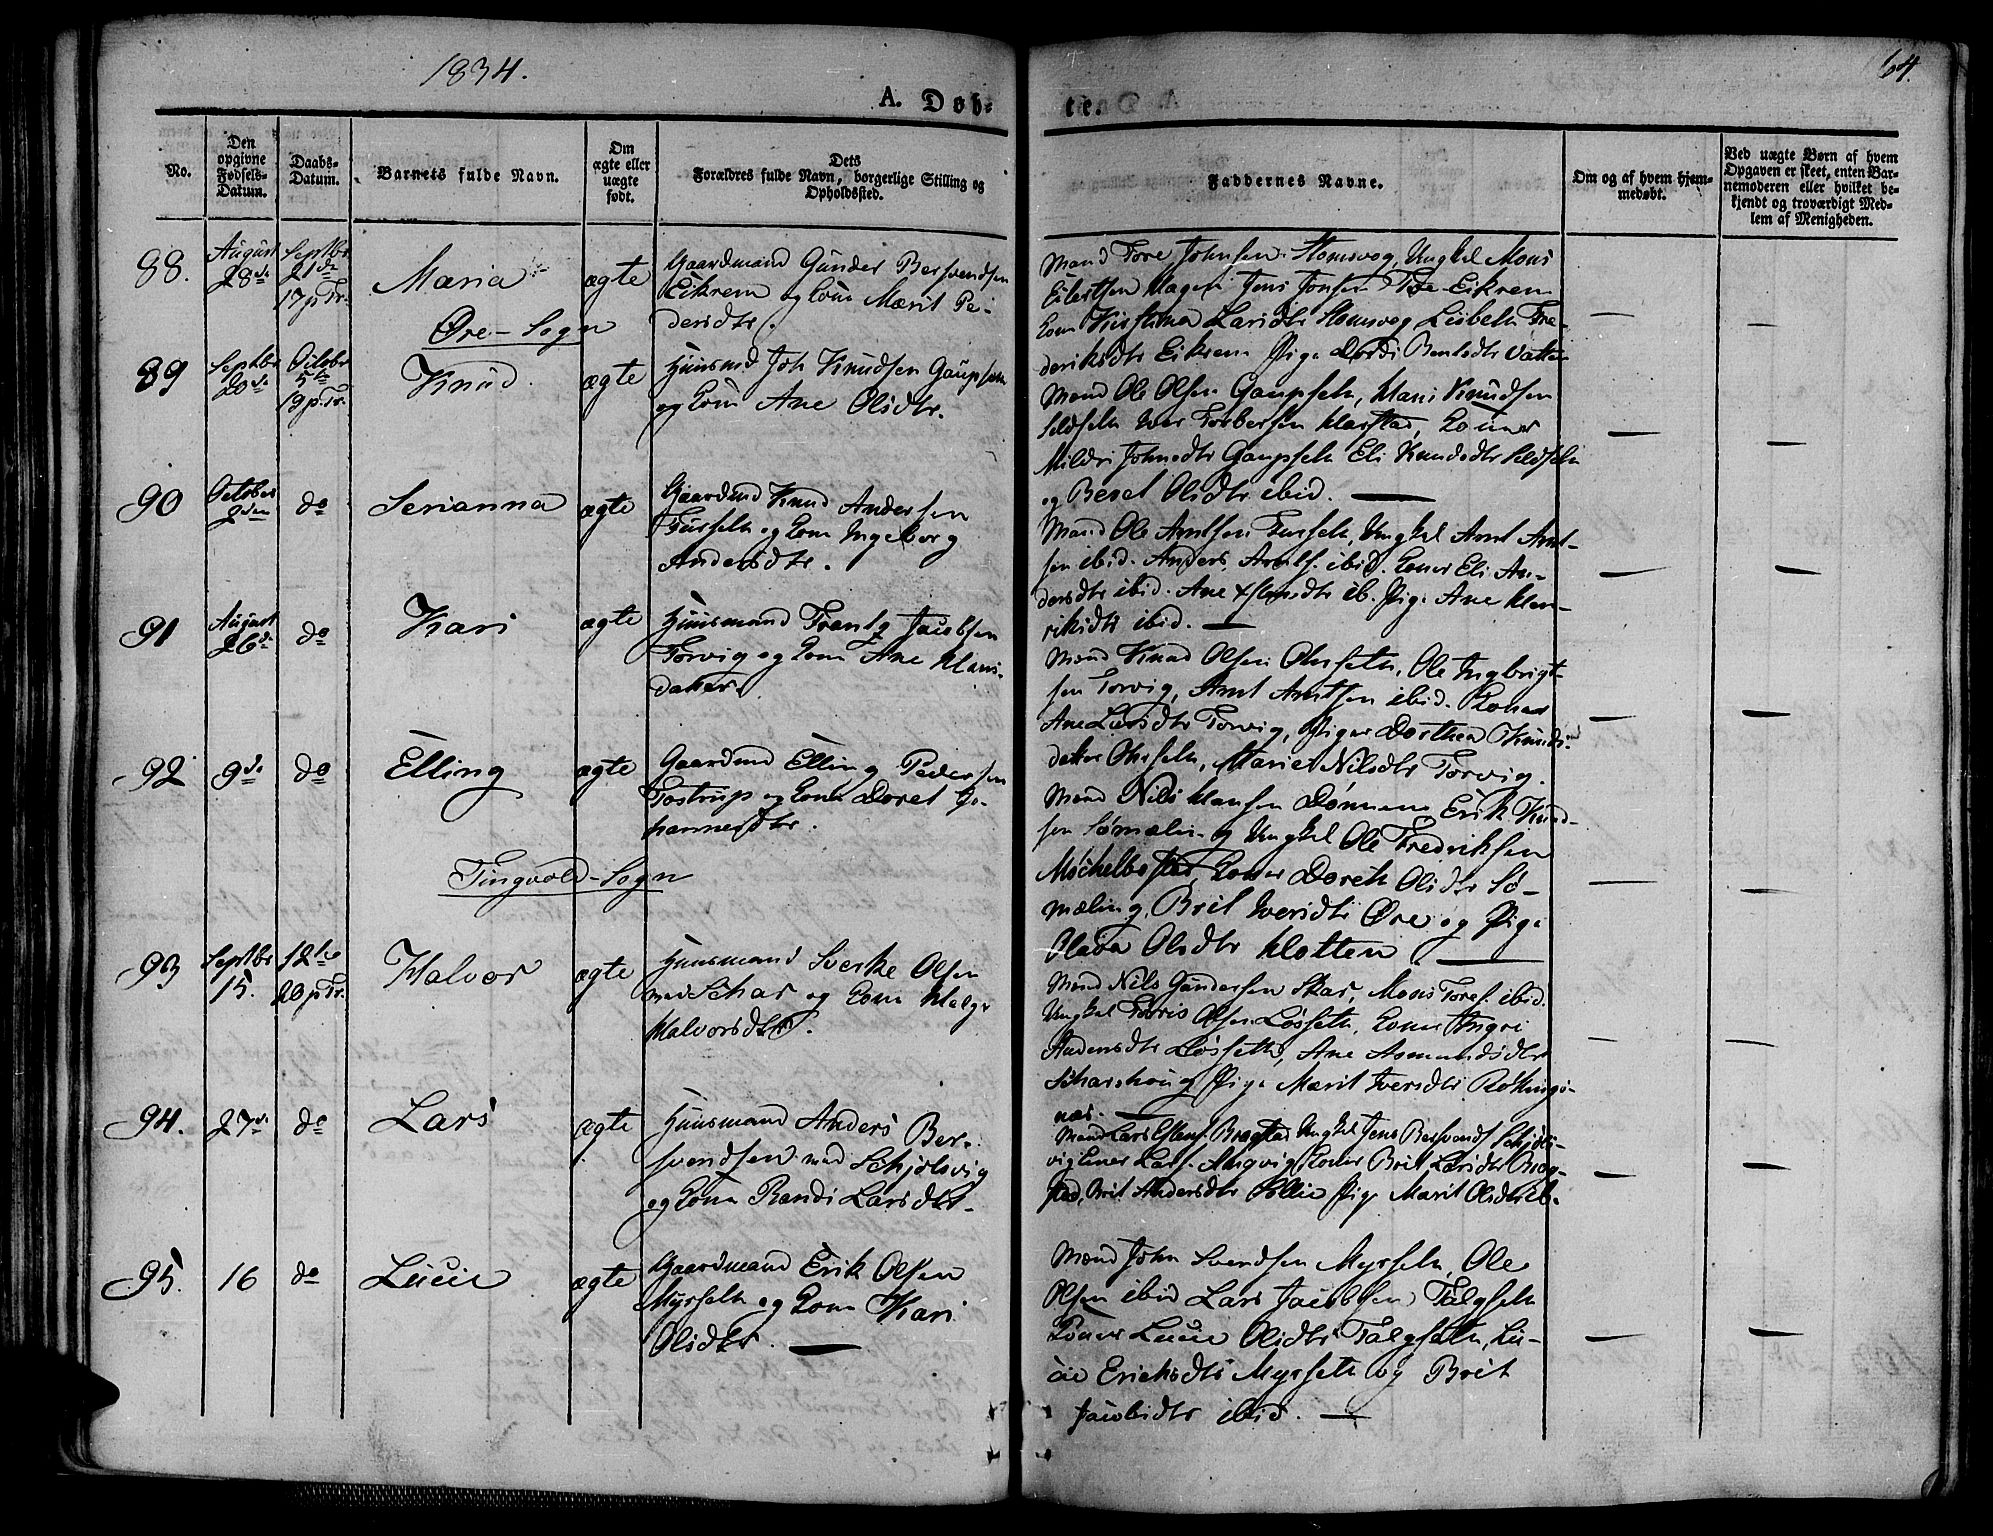 1834.
64.
A. Døb-
te.
No.
Den opgivne Fødsels-Datum.
Daabs-Datum.
Barnets fulde Navn.
Om ægte eller uægte født.
Dets Forældres fulde Navn, borgerlige Stilling og Opholdssted.
Faddernes Navne.
Om og af hvem hjemmedøbt.
Ved uægte Børn af hvem Opgaven er skeet, enten Barnemoderen eller hvilket bekjendt og troværdigt Medlem af Menigheden.
88. August 28de Septbr 21de 17 p Tr. Maria ægte
Gaardmand Gunder Bersvendsen
Eikrem og Kone Marit Pe-
dersdtr.
Mænd Tore Johnsen Stomsvog, Ungkel Mons
Eilertsen Jens Jonsen Eikrem
Kone Kirstina Larsdtr Stomsvog Lisbeth Fre-
deriksdtr Eikrem Pige Dordi Bentsdtr
Øre-Sogn
89 Septbr 20de Octobr 5te 19 p. Tr. Knud ægte
Huusmd Joh Knudsen Gaupseth
og Kone Ane Olsdtr.
Mænd Ole Olsen Gaupseth, Hans Knudsen
Iver Torbersen Harstad, Koner
Mildri Johnsdtr Gaupseth Eli Knudsdtr
og Beret Olsdtr ibid.
90 October 2den do Serianna ægte
Gaardmd Knud Andersen
Furseth og Kone Ingeborg
Andersdtr.
Mænd Ole Arntsen Furseth, Ungkel Arnt Arnt-
sen ibid. Anders Arntss. ibid. Koner Eli An-
dersdtr ibid. Ane ib. Pige Ane Hen-
riksdtr ibid.
91 August 26de do Kari ægte
Huusmand Frantz Jacobsen
Torvig og Kone Ane Hans-
datter.
Mænd Knud Olsen Ohrseth, Ole Ingbrigt-
sen Torvig, Arnt Arntsen ibid. Koner
Ane Larsdtr Torvig, Piger Dorthea Knuds-
datter Ohrseth, Marie Nilsdtr Torvig.
92 9de do Elling ægte
Gaardmd Elling Pedersen
Tostrup og Kone Doret Jo-
hannesdtr.
Mænd Nils Hansen Dønnem Erik Knud-
sen Sømæling Ungkel Ole Fredriksen
Koner Doreth Olsdtr Sø-
mæling, Brit Iversdtr Øre og Pige
Olava Olsdtr Holten
Tingvold-Sogn
93 Septbr 15. 12te 20 p Tr. Halvor ægte
Huusmand Sverke Olsen
med Schar og Kone Helge
Halvorsdtr.
Mænd Nils Gundersen Skar, Mons Tores. ibid.
Ungkel Torris Olsen Løsseth, Koner Ingri
Andersdtr Løsseth, Ane Asmundsdtr
Scharshoug Pige Marit Iversdtr Røkings-
næs.
94. 27de do Lars ægte
Huusmand Anders Ber-
svendsen med Schjølsvig
og Kone Randi Larsdtr.
Mænd Lars Estens. Bragstad Ungkel Jens Bersvends. Schjøls-
vig Lars. Angvig Koner Brit Larsdtr Brag-
stad, Brit Andersdtr Pige Marit Olsdtr ib.
95. 16 do Lucie ægte
Gaardmand Erik Olsen
Myrseth og Kone Kari
Olsdtr.
Mænd John Svendsen Myrseth, Ole
Olsen ibid Lars Jacobsen Talgseth
Koner Lucie Olsdtr Talgseth, Lu-
cie Erichsdtr Myrseth og Brit
Jacobsdtr ibid.